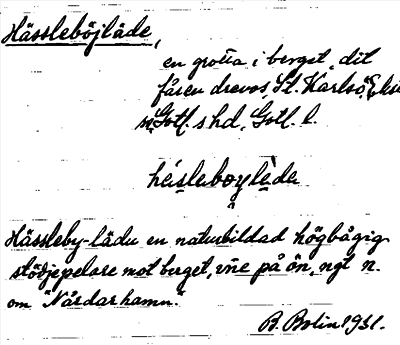 Hässleböjläde,
en grotta i berget, dit
fåren drevos, St. Karlsö, Eksta
Gotl. s hd, Gotl. l.
hẹisleboylède
Hässleby-lädu en naturbildad högbågig
stödjepelare mot berget, på ön, ngt n.
om "Nårdarhamn".
B. Bolin 1931.